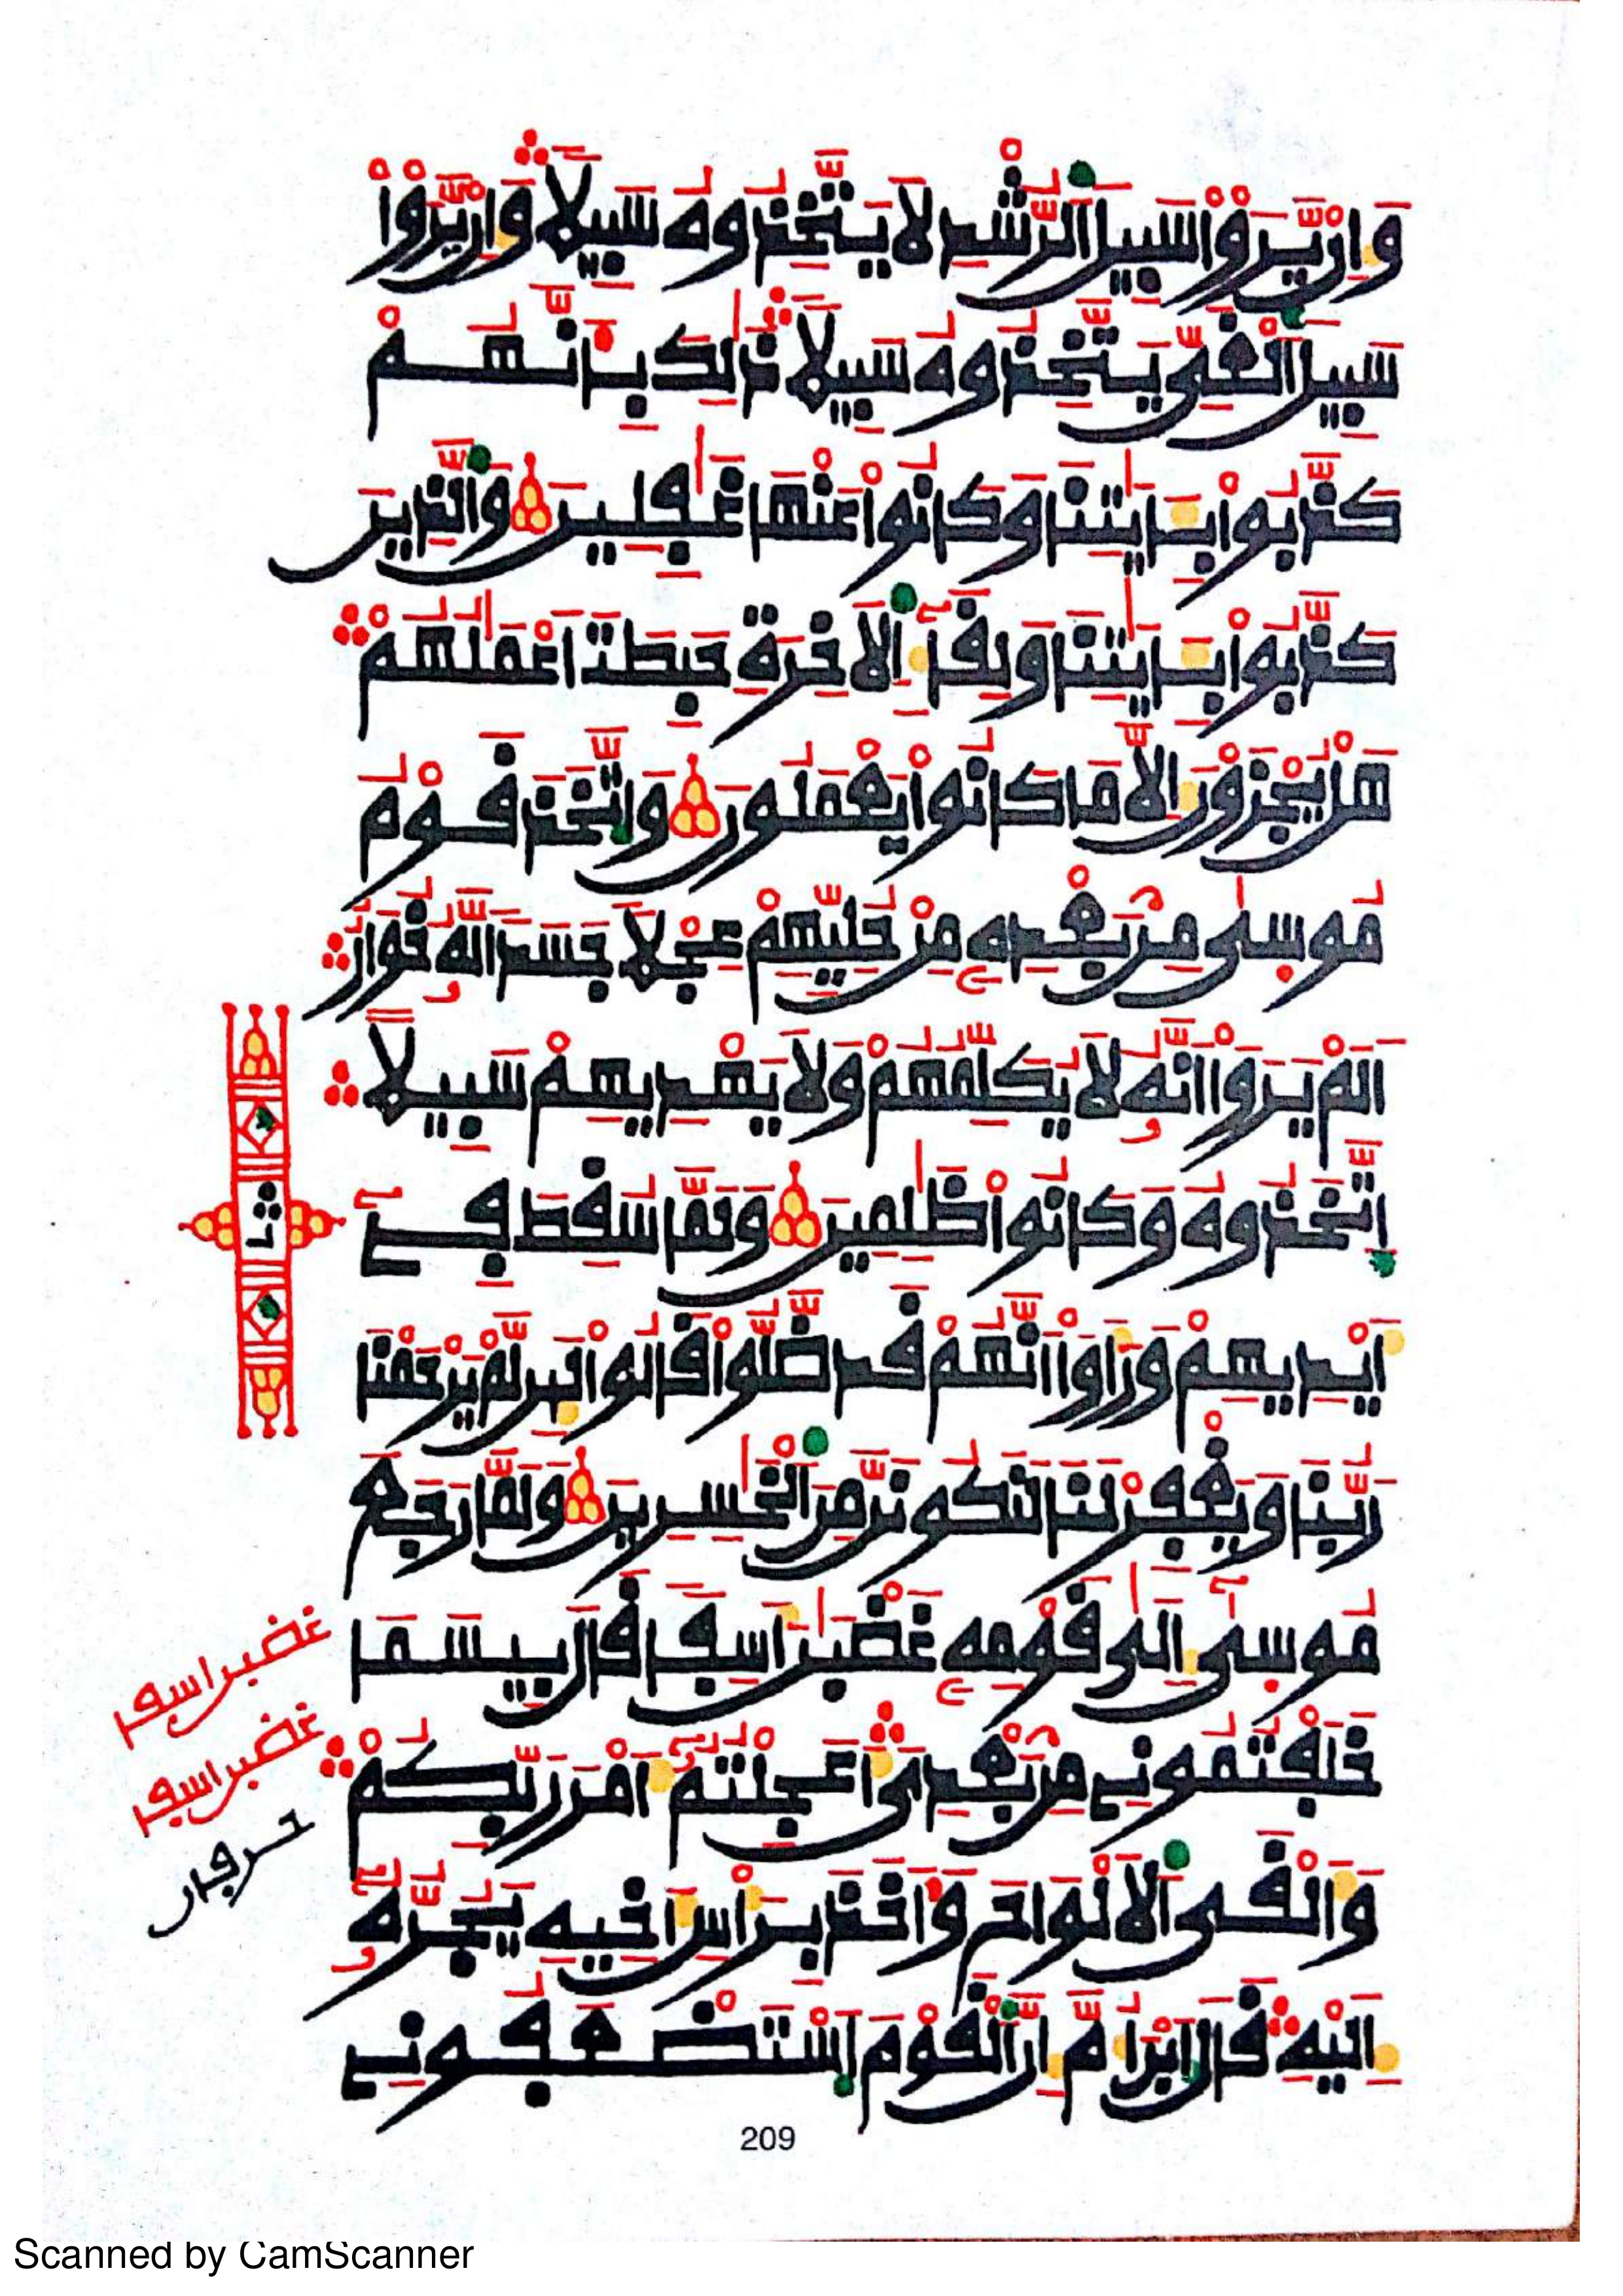 وَإِنْ يَّرَوْاْ سَبِيلَ اَلرُّشْدِ لَا يَتَّخِذُوهُ سَبِيلاً وَإِنْ يَّرَوْاْ
سَبِيلَ اَلْغَيِّ يَتَّخِذُوهُ سَبِيلاً ذَٰلِكَ بِأَنَّهُمْ
كَذَّبُواْ بِـَٔايَٰتِنَا وَكَانُواْ عَنْهَا غَٰفِلِينَ وَالَّذِينَ
كَذَّبُواْ بِـَٔايَٰتِنَا وَلِقَآءِ اَلَاخِرَةِ حَبِطَتَ اَعْمَٰلُهُمْ
هَلْ يُجْزَوْنَ إِلَّا مَا كَانُواْ يَعْمَلُونَ وَاتَّخَذَ قَوْمُ
مُوسَىٰ مِنۢ بَعْدِهِۦ مِنْ حُلِيِّهِمْ عِجْلاً جَسَداً لَّهُۥ خُوَارٌ
اَلَمْ يَرَوَاْ اَنَّهُۥ لَا يُكَلِّمُهُمْ وَلَا يَهْدِيهِمْ سَبِيلاً
اِتَّخَذُوهُ وَكَانُواْ ظَٰلِمِينَ وَلَمَّا سُقِطَ فِےٓ
أَيْدِيهِمْ وَرَأَوَاْ اَنَّهُمْ قَد ضَّلُّواْ قَالُواْ لَئِن لَّمْ يَرْحَمْنَا
رَبُّنَا وَيَغْفِرْ لَنَا لَنَكُونَنَّ مِنَ اَلْخَٰسِرِينَ وَلَمَّا رَجَعَ
مُوسَىٰٓ إِلَىٰ قَوْمِهِۦ غَضْبَٰنَ أَسِفاً قَالَ بِيسَمَا
خَلَفْتُمُونِے مِنۢ بَعْدِيَ أَعَجِلْتُمُۥٓ أَمْرَ رَبِّكُمْ
وَأَلْقَى اَلَالْوَاحَ وَأَخَذَ بِرَأْسِ أَخِيهِ يَجُرُّهُۥٓ
إِلَيْهِ قَالَ اَبْنَ أُمَّ إِنَّ اَلْقَوْمَ اَسْتَضْعَفُونِے
ثمن
غضبن اسفا
غضبن اسفا
حرفان
209
Scanned by CamScanner